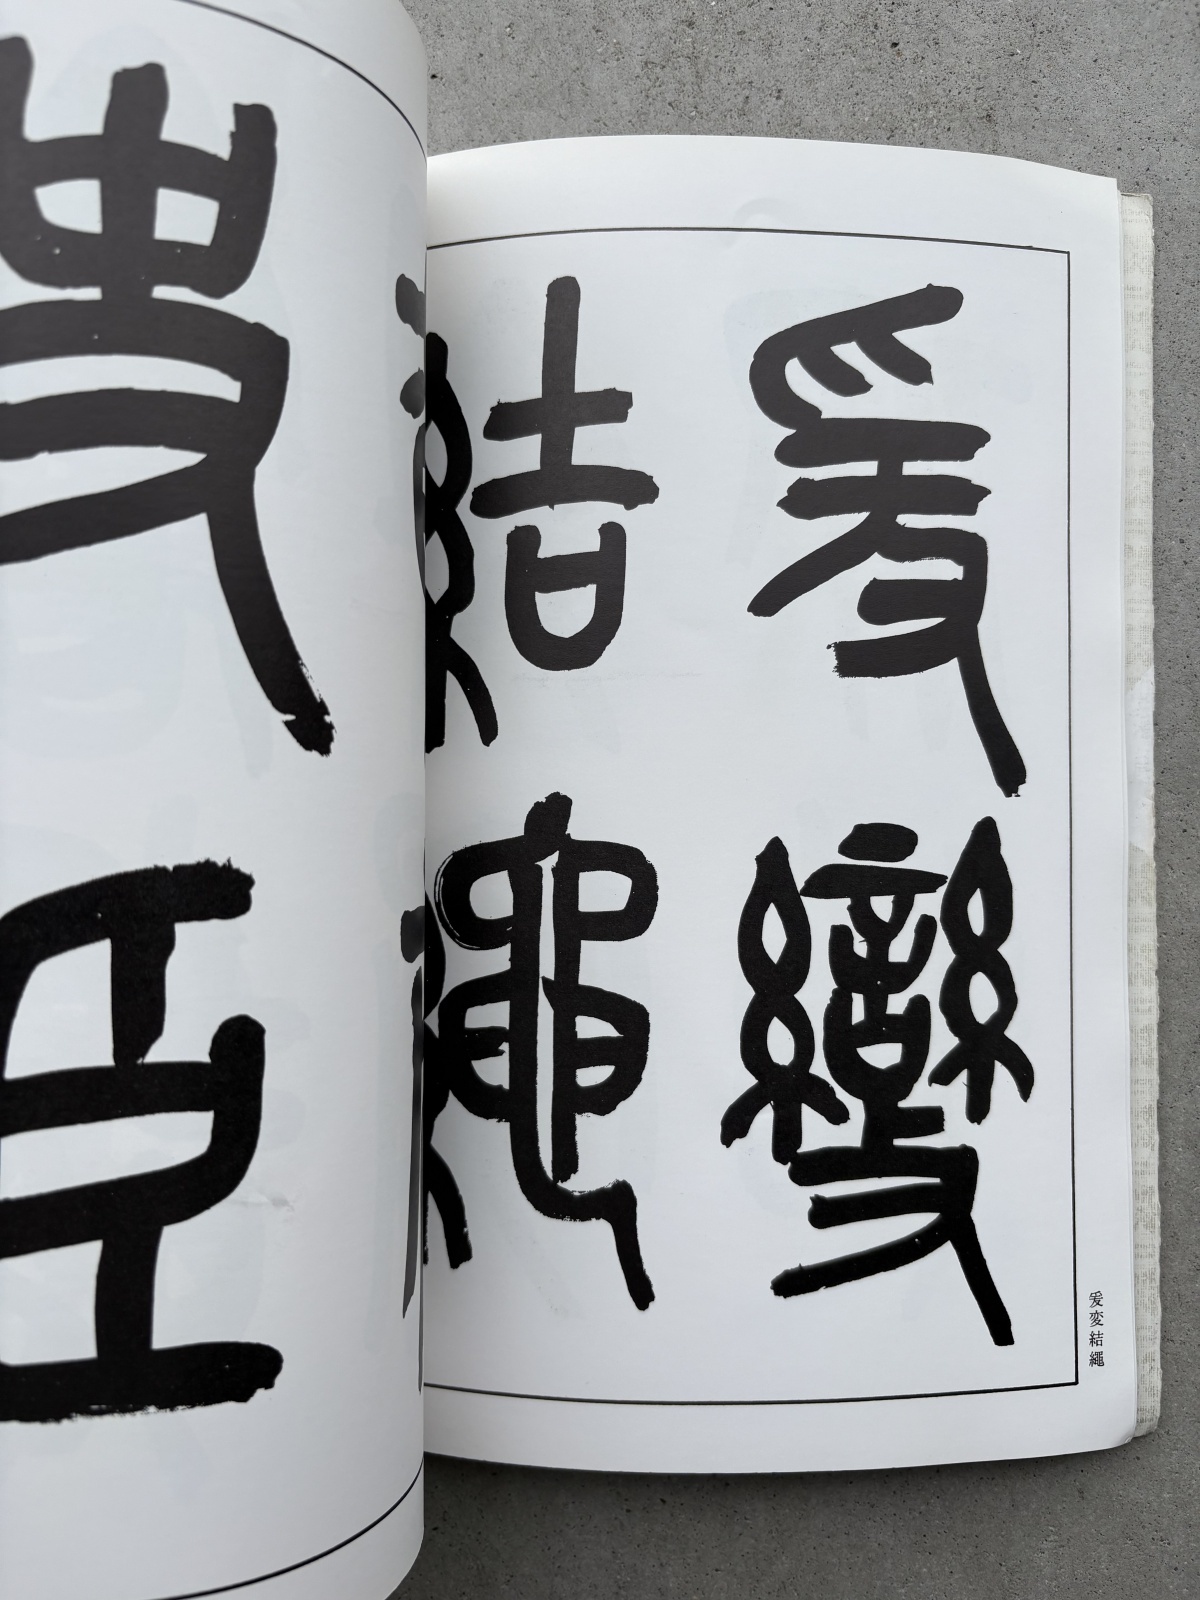 爰變
結繩
爰変結繩